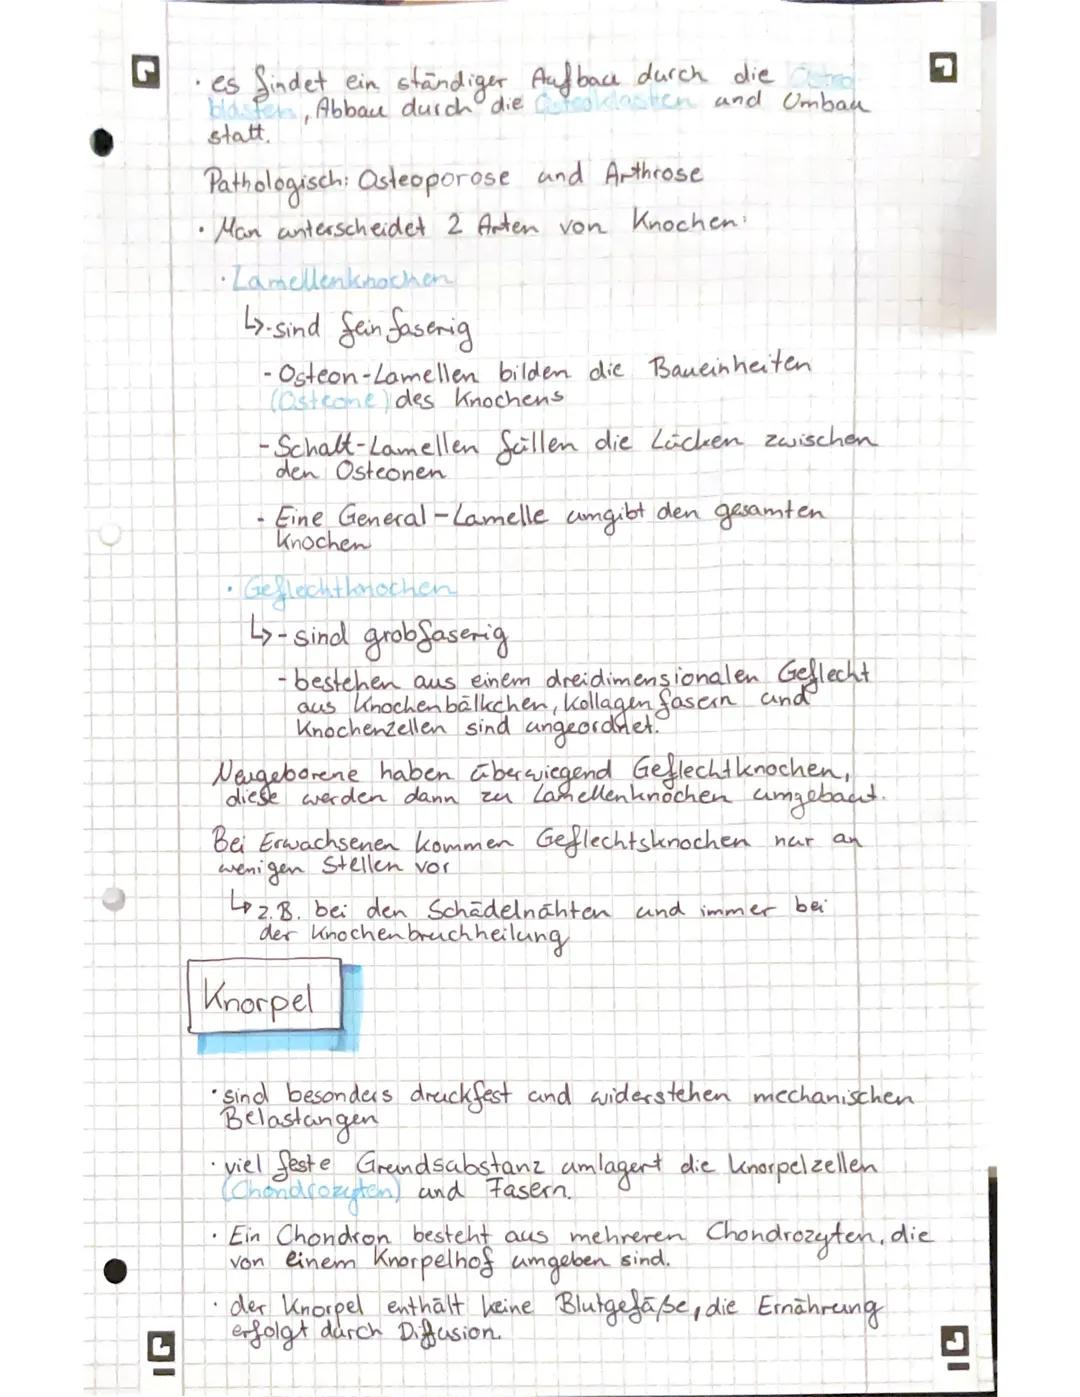 · es findet ein ständiger Aufbau durch die Osteo
blasten, Abbau durch die Osteoklasten und Umbau
statt.
Pathologisch: Osteoporose und Arthrose
· Man unterscheidet 2 Arten von Knochen:
· Lamellenknochen
↳ - sind feinfaserig
- Osteon-Lamellen bilden die Baueinheiten
(Osteone) des Knochens
- Schalt-Lamellen füllen die Lücken zwischen
den Osteonen
- Eine General-Lamelle umgibt den gesamten
Knochen
· Geflechtknochen
↳ - sind grobfaserig
- bestehen aus einem dreidimensionalen Geflecht
aus Knochenbälkchen, Kollagenfasern und
Knochenzellen sind ungeordnet.
Neugeborene haben überwiegend Geflechtknochen,
diese werden dann zu Lamellenknochen umgebaut.
Bei Erwachsenen kommen Geflechtsknochen nur an
wenigen Stellen vor
↳ z.B. bei den Schädelnähten und immer bei
der Knochenbruchheilung
Knorpel
· sind besonders druckfest und widerstehen mechanischen
Belastungen
· viel feste Grundsubstanz umlagert die Knorpelzellen
(Chondrozyten) und Fasern.
· Ein Chondron besteht aus mehreren Chondrozyten, die
von einem Knorpelhof umgeben sind.
· der Knorpel enthält keine Blutgefäße, die Ernährung
erfolgt durch Diffusion.